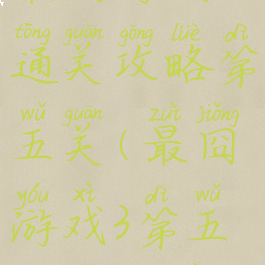 tōng guān gōng lüè dì
通关攻略第
wǔ guān zuì jiǒng
五关(最囧
yóu xì dì wǔ
游戏3第五